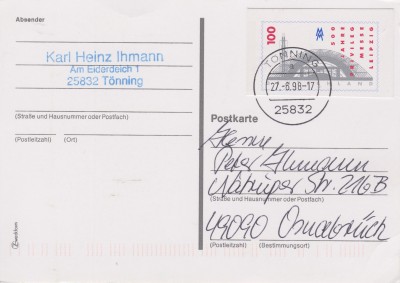 Absender
Karl Heinz Ihmann
Am Eiderdeich 1
25832 Tönning
(Straße und Hausnummer oder Postfach)
(Postleitzahl) (Ort)
100
500 JAHRE MESSEPRIVILEG LEIPZIG
TÖNNING
a
27.-6.98-17
25832
Postkarte
Herrn
Peter
Str. 216B
(Straße und Hausnummer oder Postfach)
49090 Osnabrück
(Postleitzahl) (Bestimmungsort)